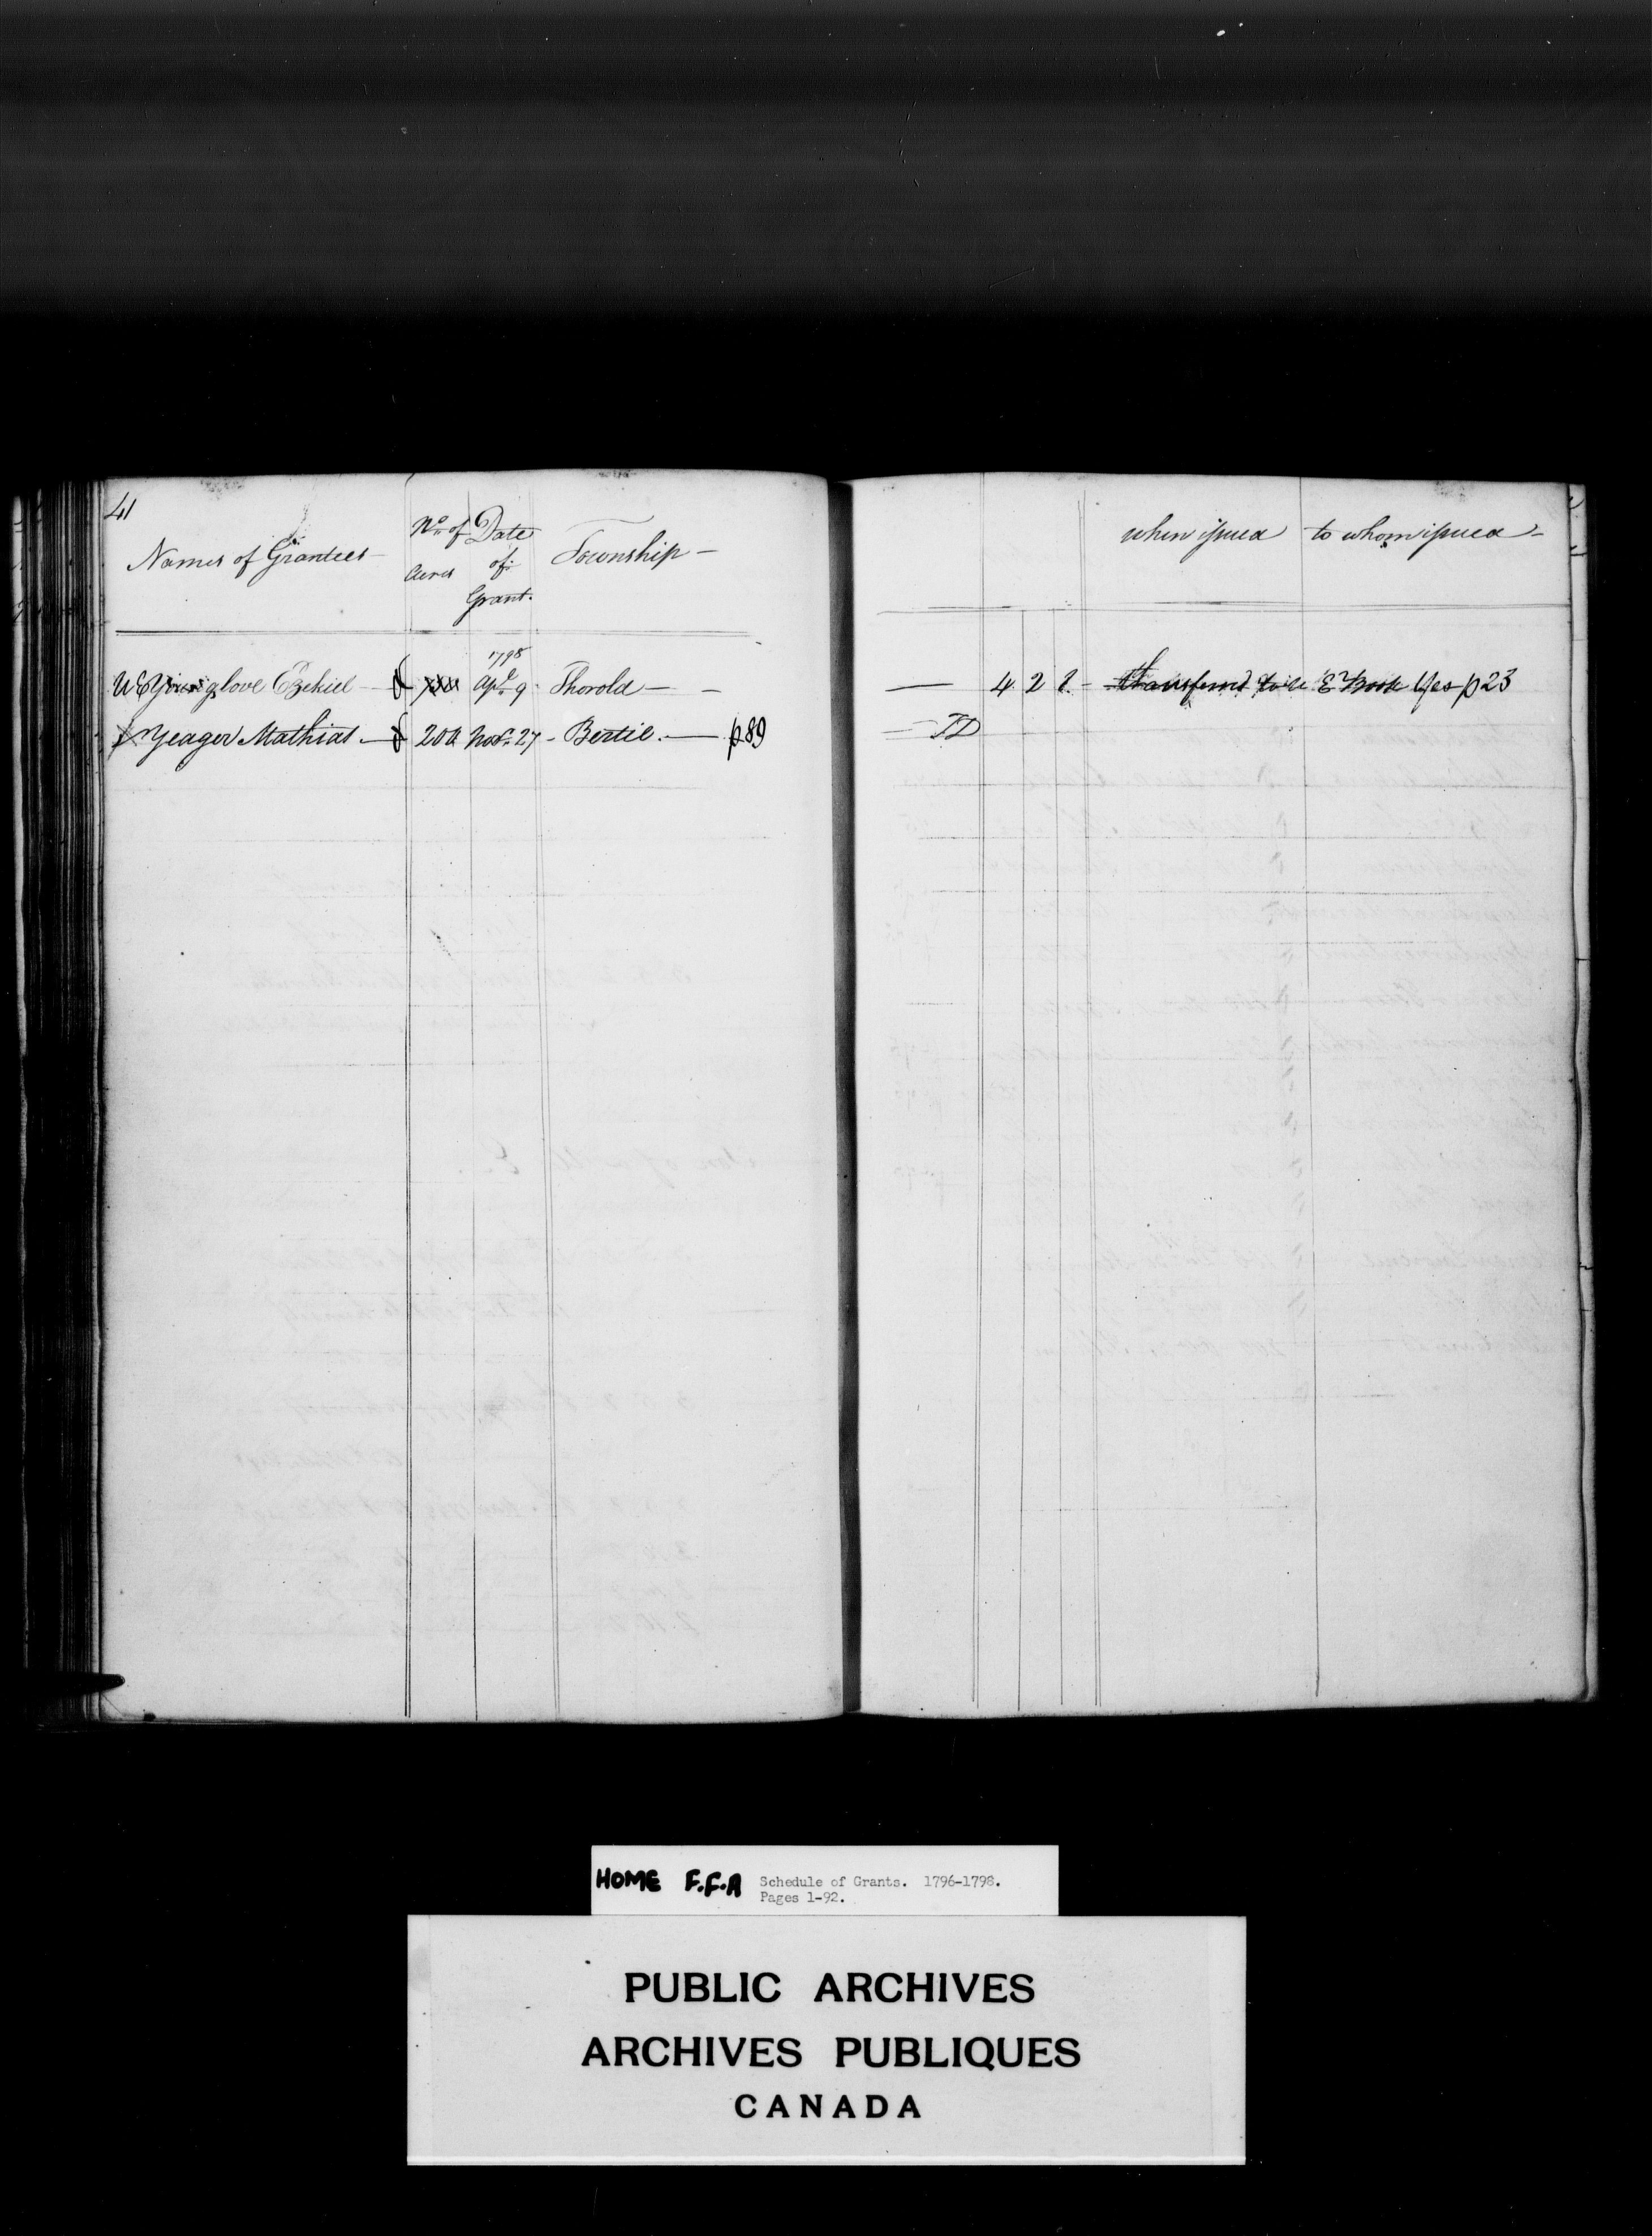 41
Names of Grantees
No. of Acres
Date of Grant.
Township
when issued
to whom issued
1798
UE Younglove Ezekiel Apl. 9 Thorold
4 2 2 transferred to U E Book Yes p23
Yeager Mathias 200 Novr. 27 Bertie. p89
HOME F.F.A Schedule of Grants. 1796-1798.
Pages 1-92.
PUBLIC ARCHIVES
ARCHIVES PUBLIQUES
CANADA